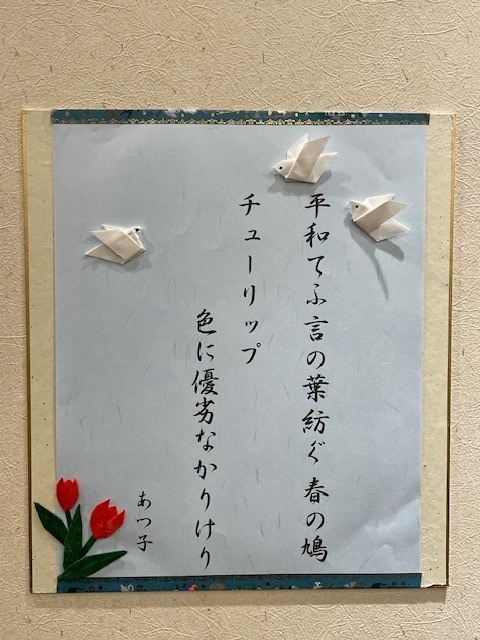 平和てふ言の葉紡ぐ 春の鳩
チューリップ
色に優劣なかりけり
あつ子